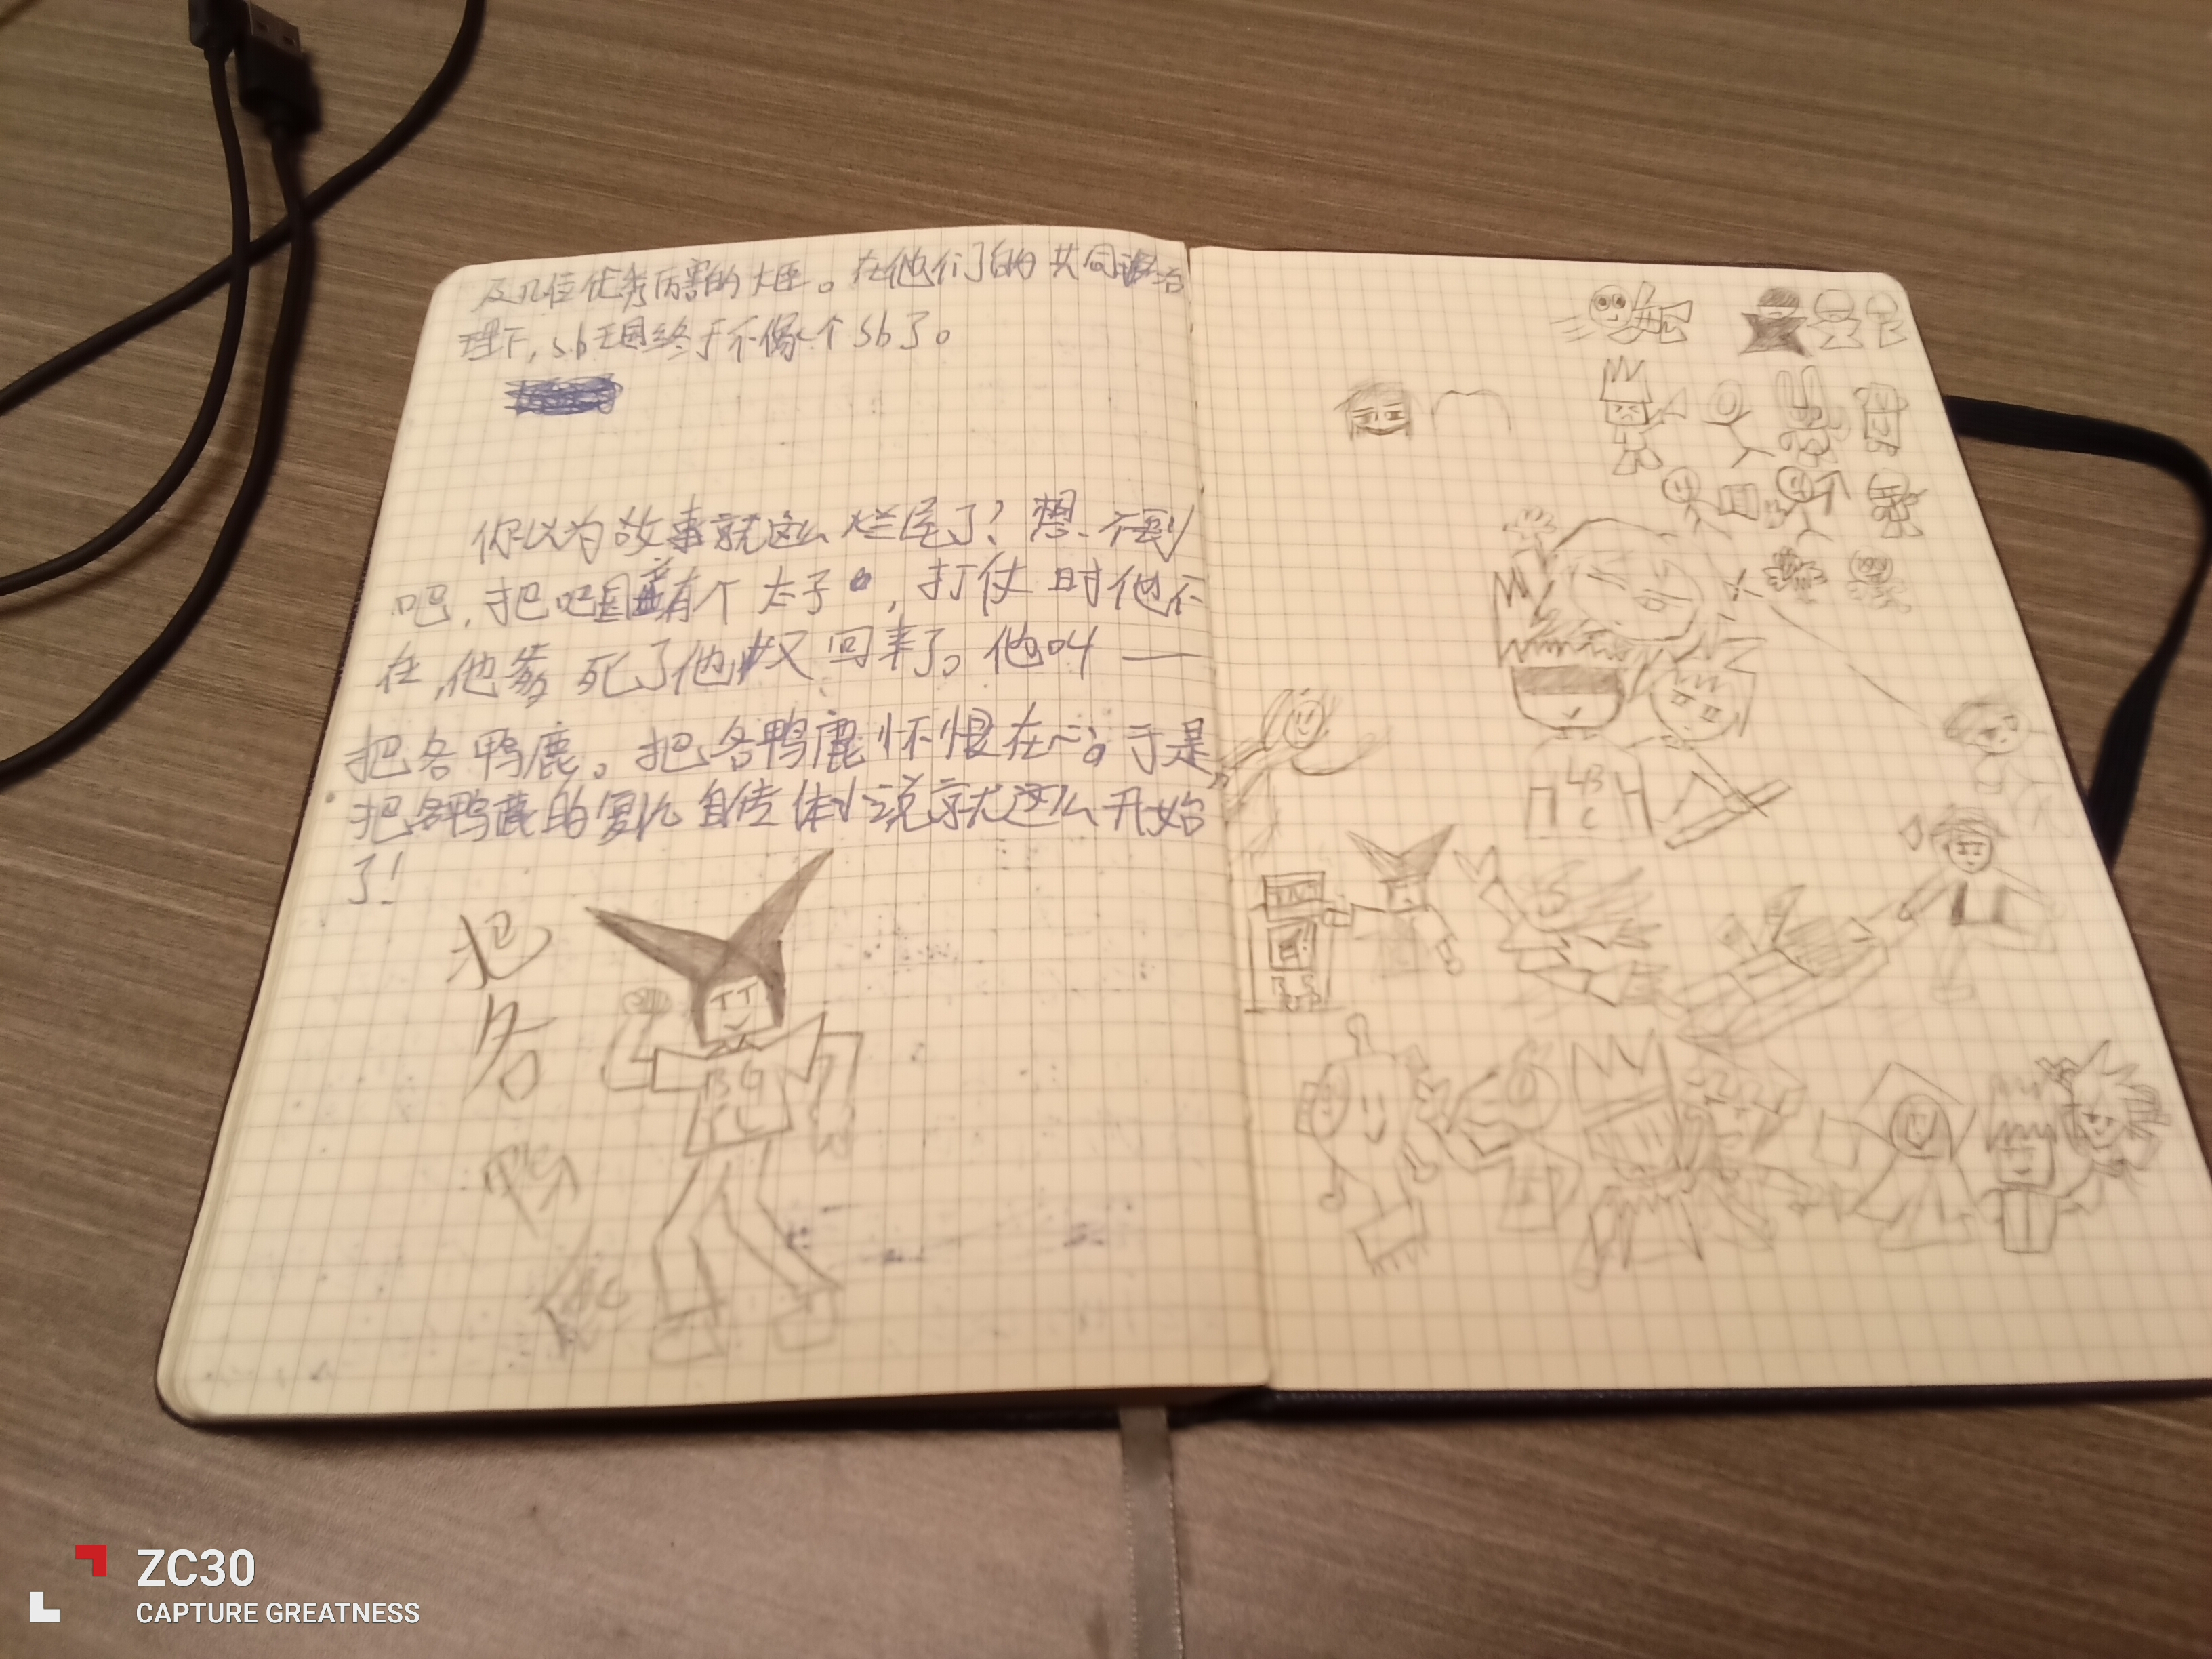 及几位优秀厉害的大臣。在他们的共同治
理下，sb王国终于不像个sb了。
你以为故事就这么烂尾了？想不到
吧，把吧国竟有个太子，打仗时他不
在，他爹死了他又回来了。他叫——
把各鸭鹿。把各鸭鹿怀恨在心。于是，
把各鸭鹿的复仇自传体小说就这么开始
了！
把
各
鸭
BG
LB
C
ZC30
CAPTURE GREATNESS